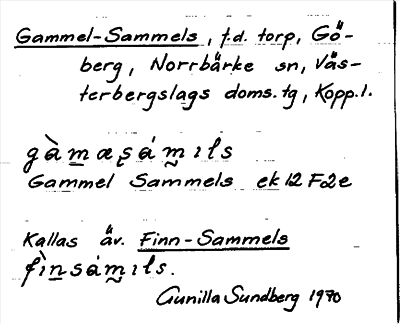 Gammel-Sammels, f.d. torp, Gö-
berg, Norrbärke sn, Väs-
terbergslags doms.tg, Kopp.l.
gàm̲æʂám̰ıls
Gammel Sammels ek 12 F2e
Kallas äv. Finn-Sammels
fìn̲sám̰ıls.
Gunilla Sundberg 1970